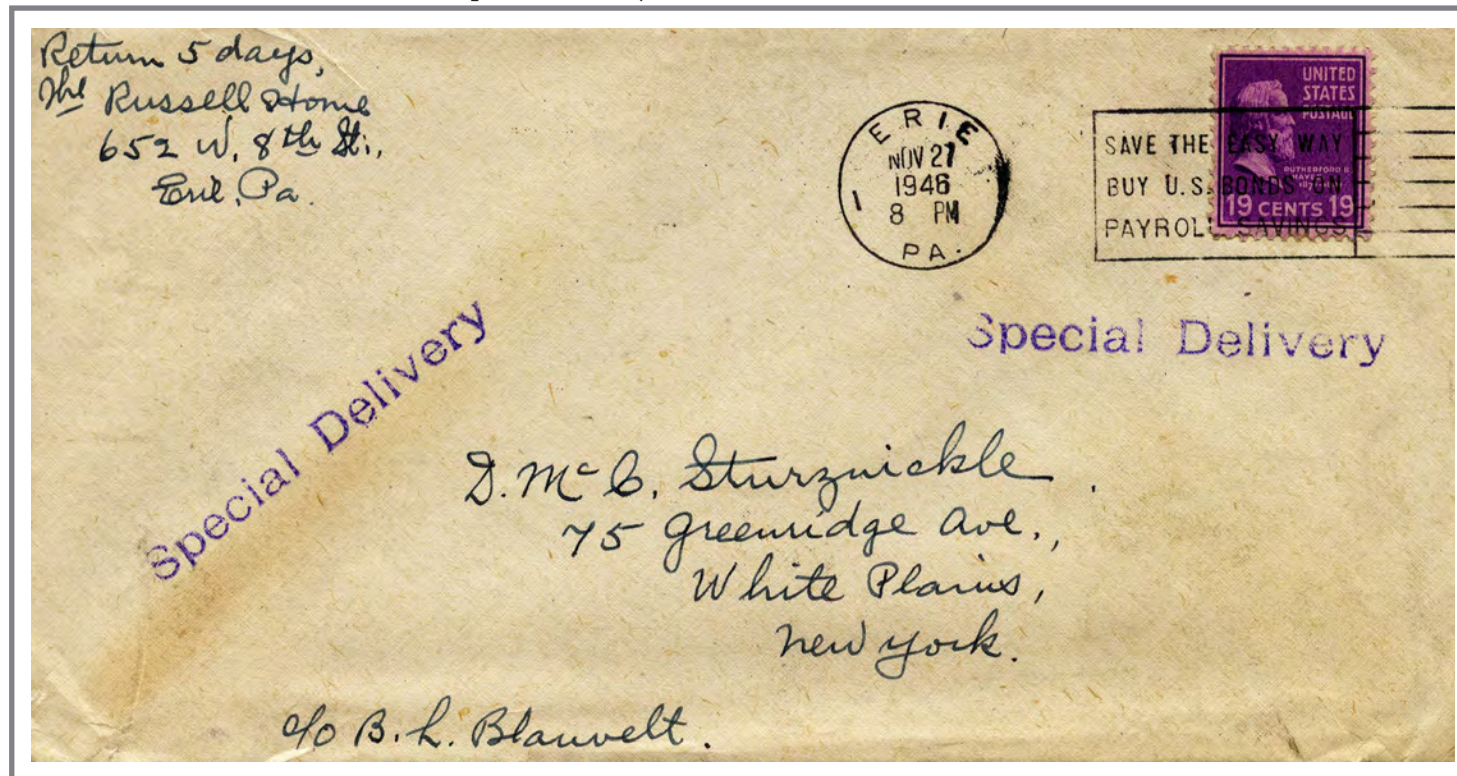 Return 5 days,
The Russell Home
652 W. 8th St.,
Erie, Pa.
ERIE
NOV 27
1946
8 PM
1
PA.
SAVE THE EASY WAY
BUY U.S. BONDS ON
PAYROLL SAVINGS
UNITED
STATES
POSTAGE
RUTHERFORD B.
HAYES
19 CENTS 19
Special Delivery
Special Delivery
D. McC. Sturznickle.
75 Greenridge Ave.,
White Plains,
New York.
c/o B. L. Blauvelt.